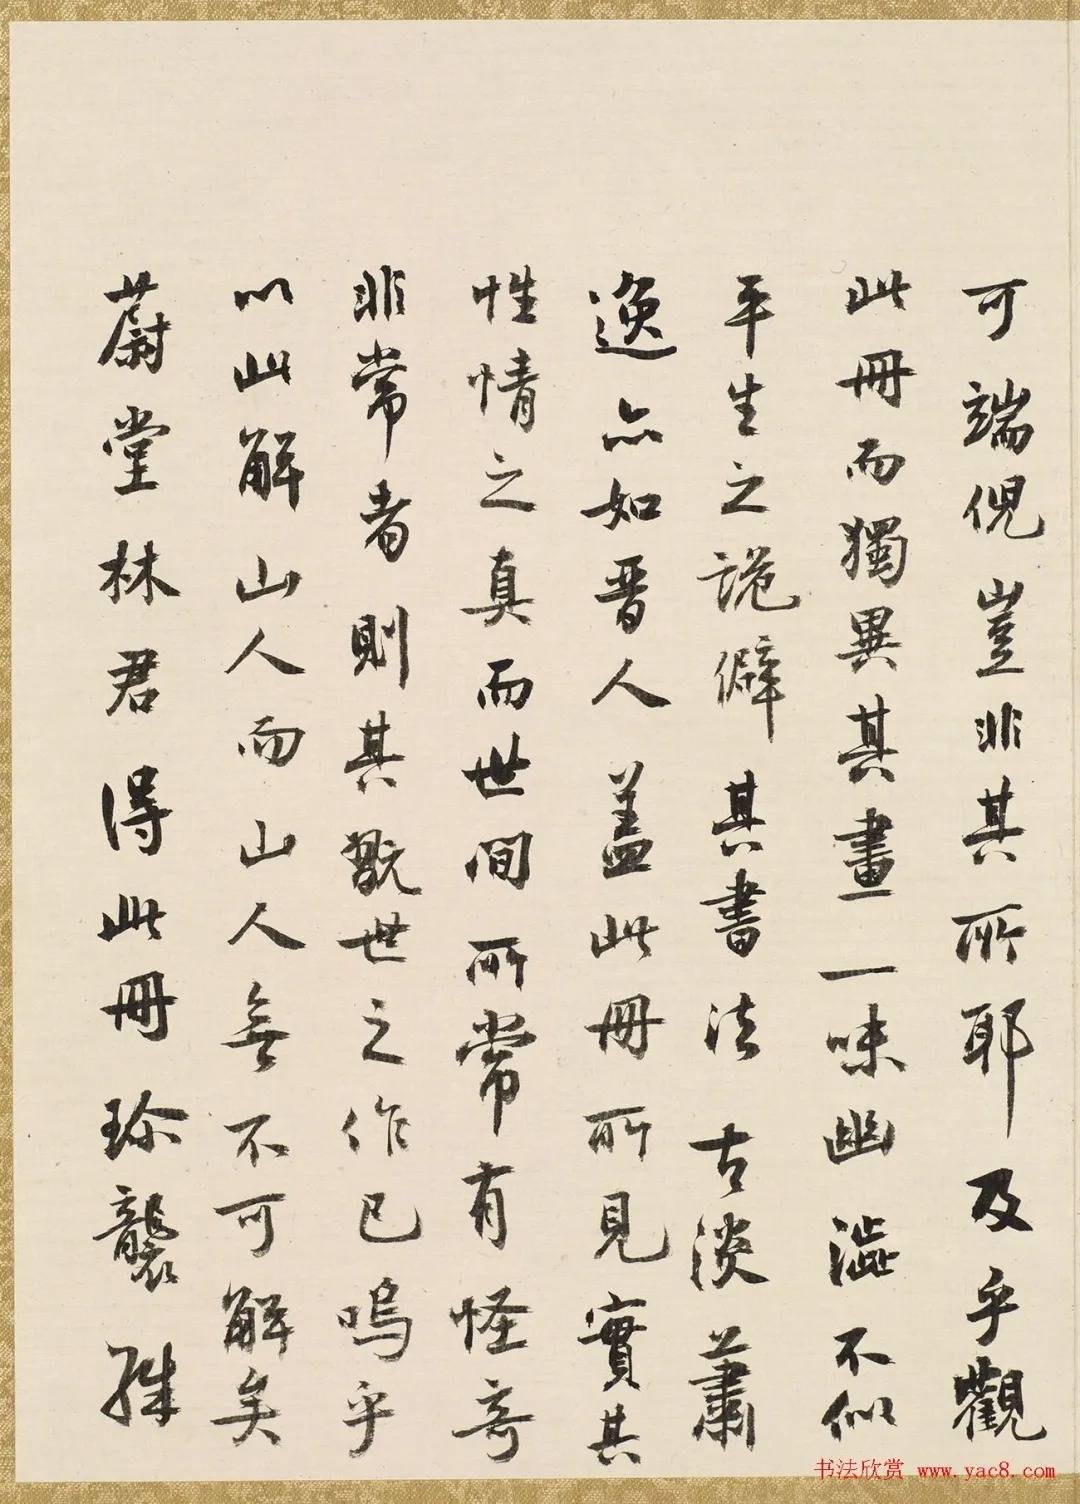 可端倪豈非其所耶及乎觀
此冊而獨異其畫一味幽澀不似
平生之詭僻其書法古淡蕭
逸亦如晉人蓋此冊所見實其
性情之真而世間所常有怪奇
非常者則其翫世之作已嗚乎
以此解山人而山人無不可解矣
蔚堂林君得此冊珍襲殊
书法欣赏 www.yac8.com